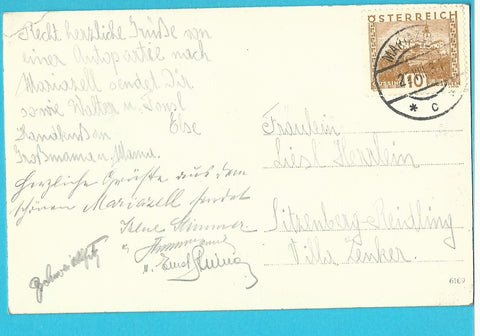 Recht herzliche Grüße von
einer Autopartie nach
Mariazell sendet Dir
sowie Walter u.
Else
Handkuß an
Großmama u. Mama.
Herzliche Grüße aus dem
schönen Mariazell sendet
u. Emst
ÖSTERREICH
10
* c
Fräulein
Liesl Herrlein
Sitzenberg-Reidling
Villa Zenker